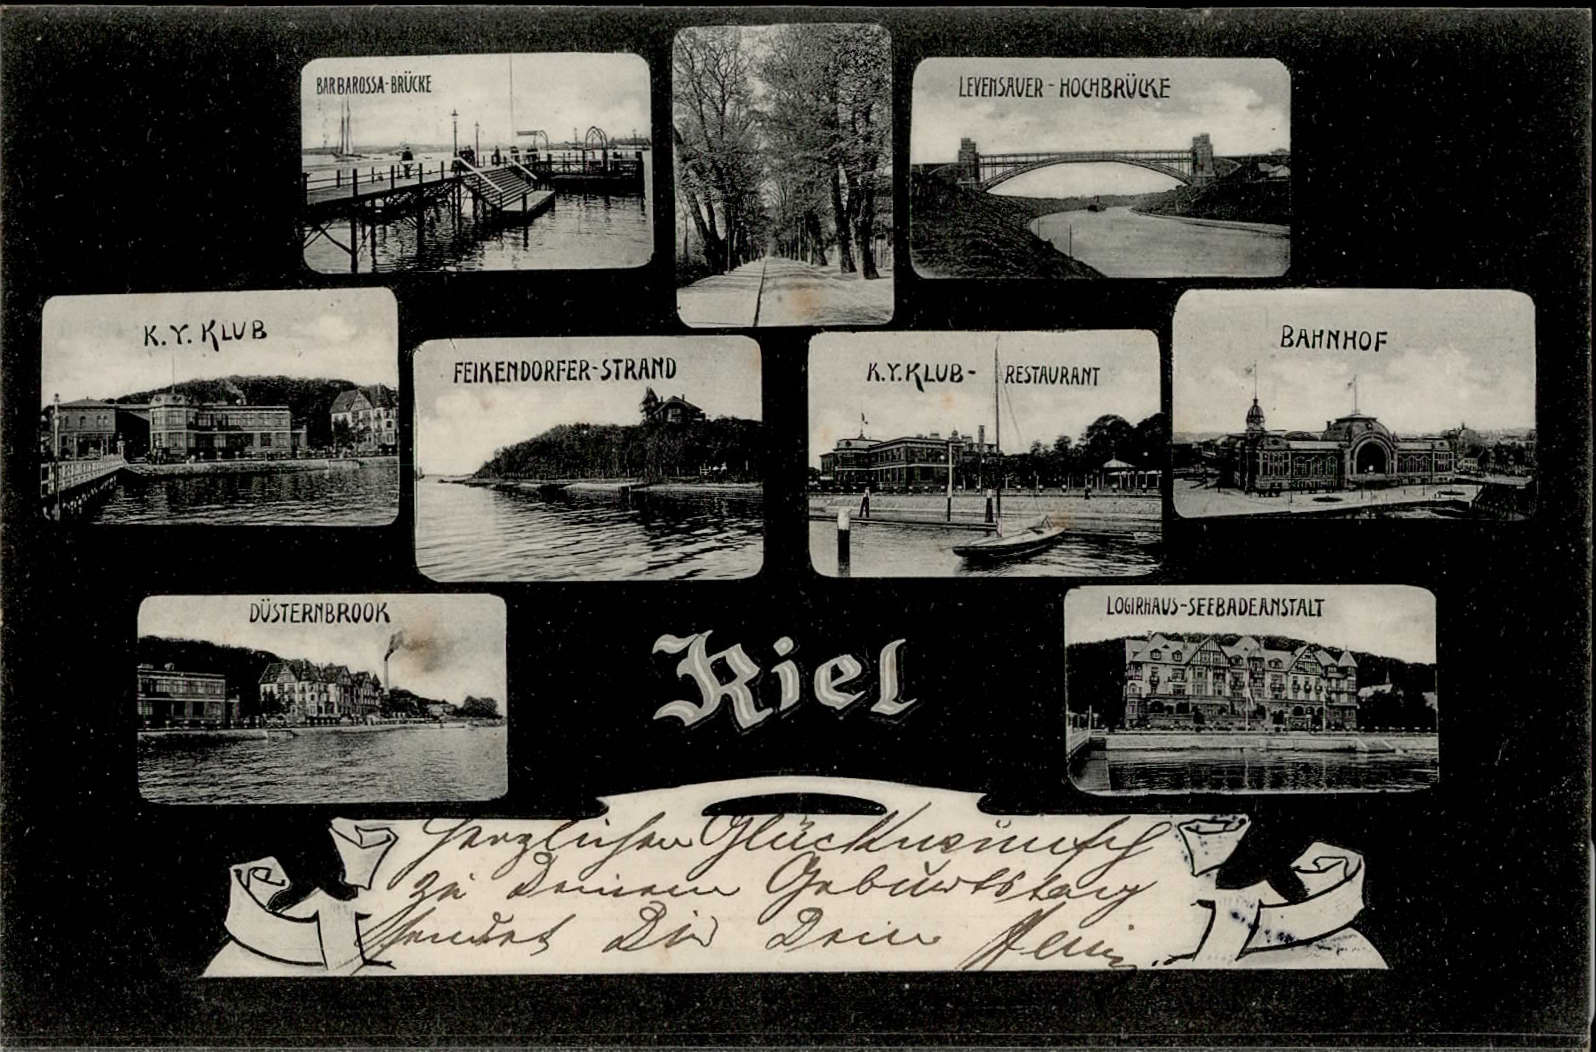 BARBAROSSA-BRÜCKE
LEVENSAUER-HOCHBRÜCKE
K.Y. KLUB
FEIKENDORFER-STRAND
K.Y. KLUB-RESTAURANT
BAHNHOF
DÜSTERNBROOK
Kiel
LOGIRHAUS-SEEBADEANSTALT
Herzlichen Glückwünsch
zu Deinem Geburtstag
sendet Dir Dein